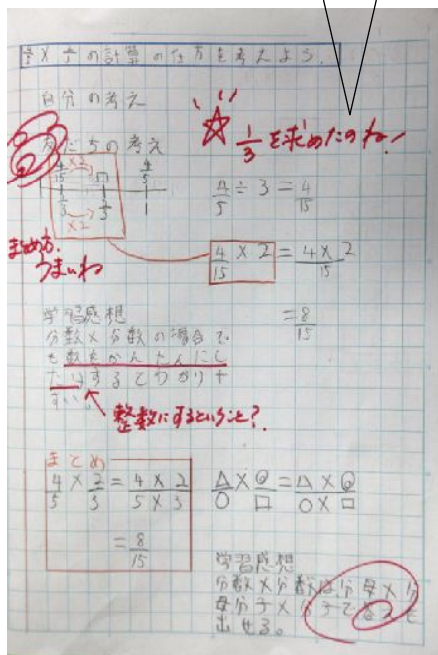 の計算の仕方を考えよう。
自分の考え
友だちの考え
1/3を求めたのね!
×2
4/5
×2
4/5 ÷ 3 = 4/15
まとめ方、
うまいね
4/15 × 2 = 4×2/15
= 8/15
学習感想
分数×分数の場合で
も数をかんたんにし
たりするとわかりや
すい。
整数にするということ?
まとめ
4/5 × 2/3 = 4×2/5×3
= 8/15
△/○ × ◎/□ = △×◎/○×□
学習感想
分数×分数は分母×分
母分子×分子で答えを
出せる。